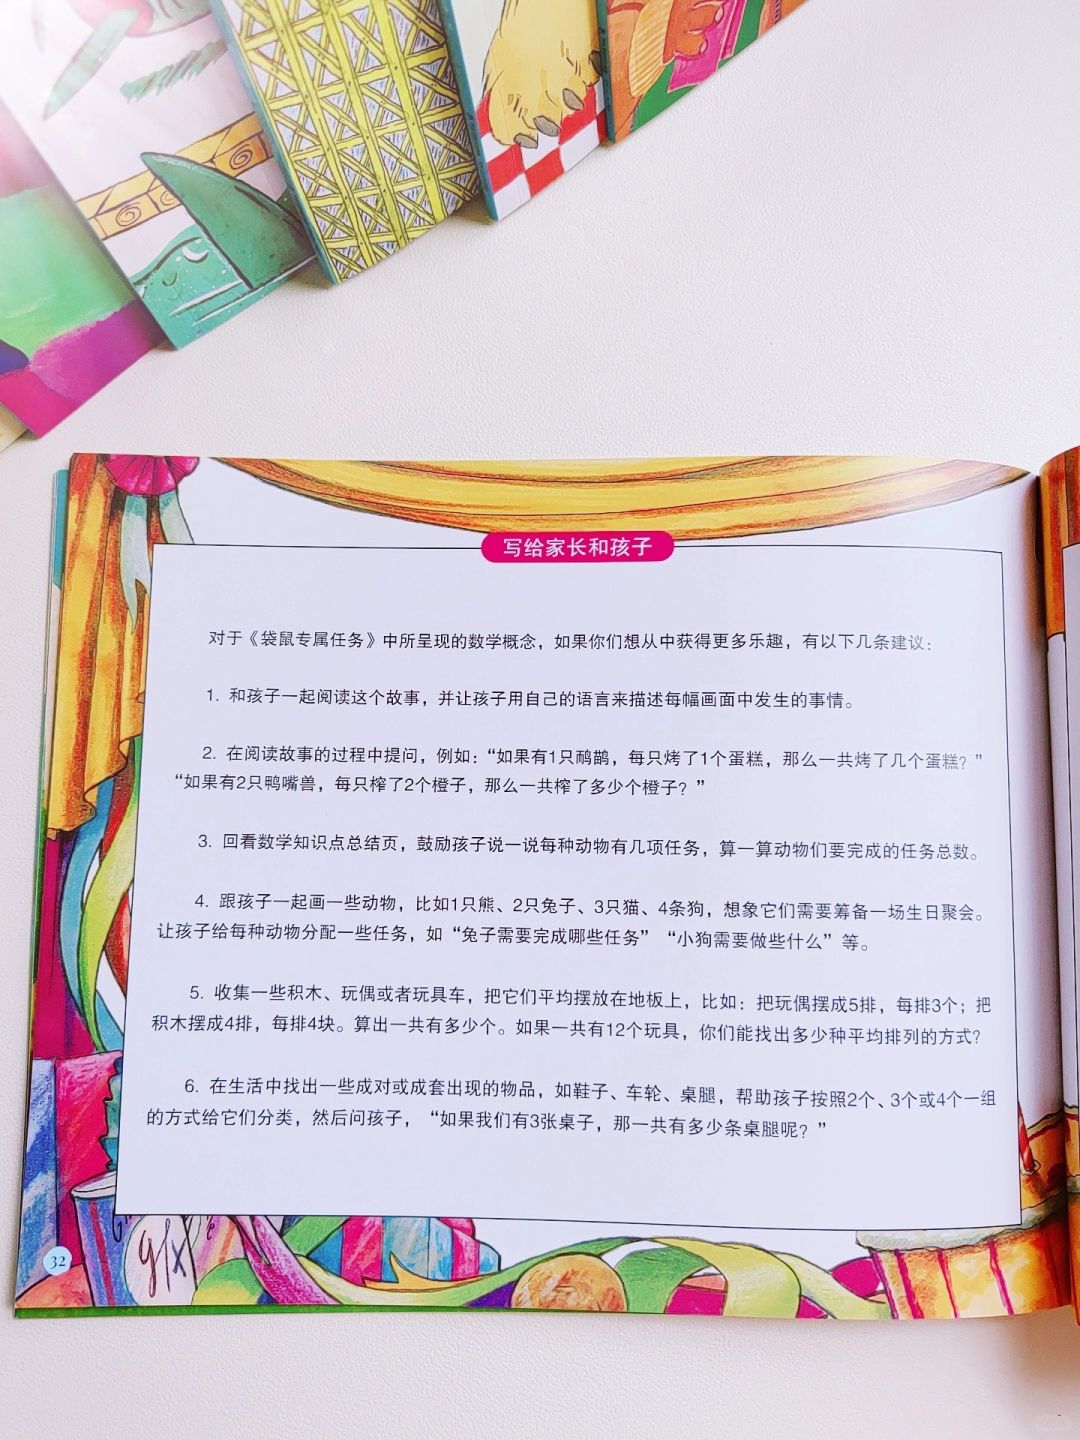 写给家长和孩子
对于《袋鼠专属任务》中所呈现的数学概念，如果你们想从中获得更多乐趣，有以下几条建议：
1. 和孩子一起阅读这个故事，并让孩子用自己的语言来描述每幅画面中发生的事情。
2. 在阅读故事的过程中提问，例如：“如果有1只鸸鹋，每只烤了1个蛋糕，那么一共烤了几个蛋糕？”
“如果有2只鸭嘴兽，每只榨了2个橙子，那么一共榨了多少个橙子？”
3. 回看数学知识点总结页，鼓励孩子说一说每种动物有几项任务，算一算动物们要完成的任务总数。
4. 跟孩子一起画一些动物，比如1只熊、2只兔子、3只猫、4条狗，想象它们需要筹备一场生日聚会。
让孩子给每种动物分配一些任务，如“兔子需要完成哪些任务”“小狗需要做些什么”等。
5. 收集一些积木、玩偶或者玩具车，把它们平均摆放在地板上，比如：把玩偶摆成5排，每排3个；把
积木摆成4排，每排4块。算出一共有多少个。如果一共有12个玩具，你们能找出多少种平均排列的方式？
6. 在生活中找出一些成对或成套出现的物品，如鞋子、车轮、桌腿，帮助孩子按照2个、3个或4个一组
的方式给它们分类，然后问孩子，“如果我们有3张桌子，那一共有多少条桌腿呢？”
32